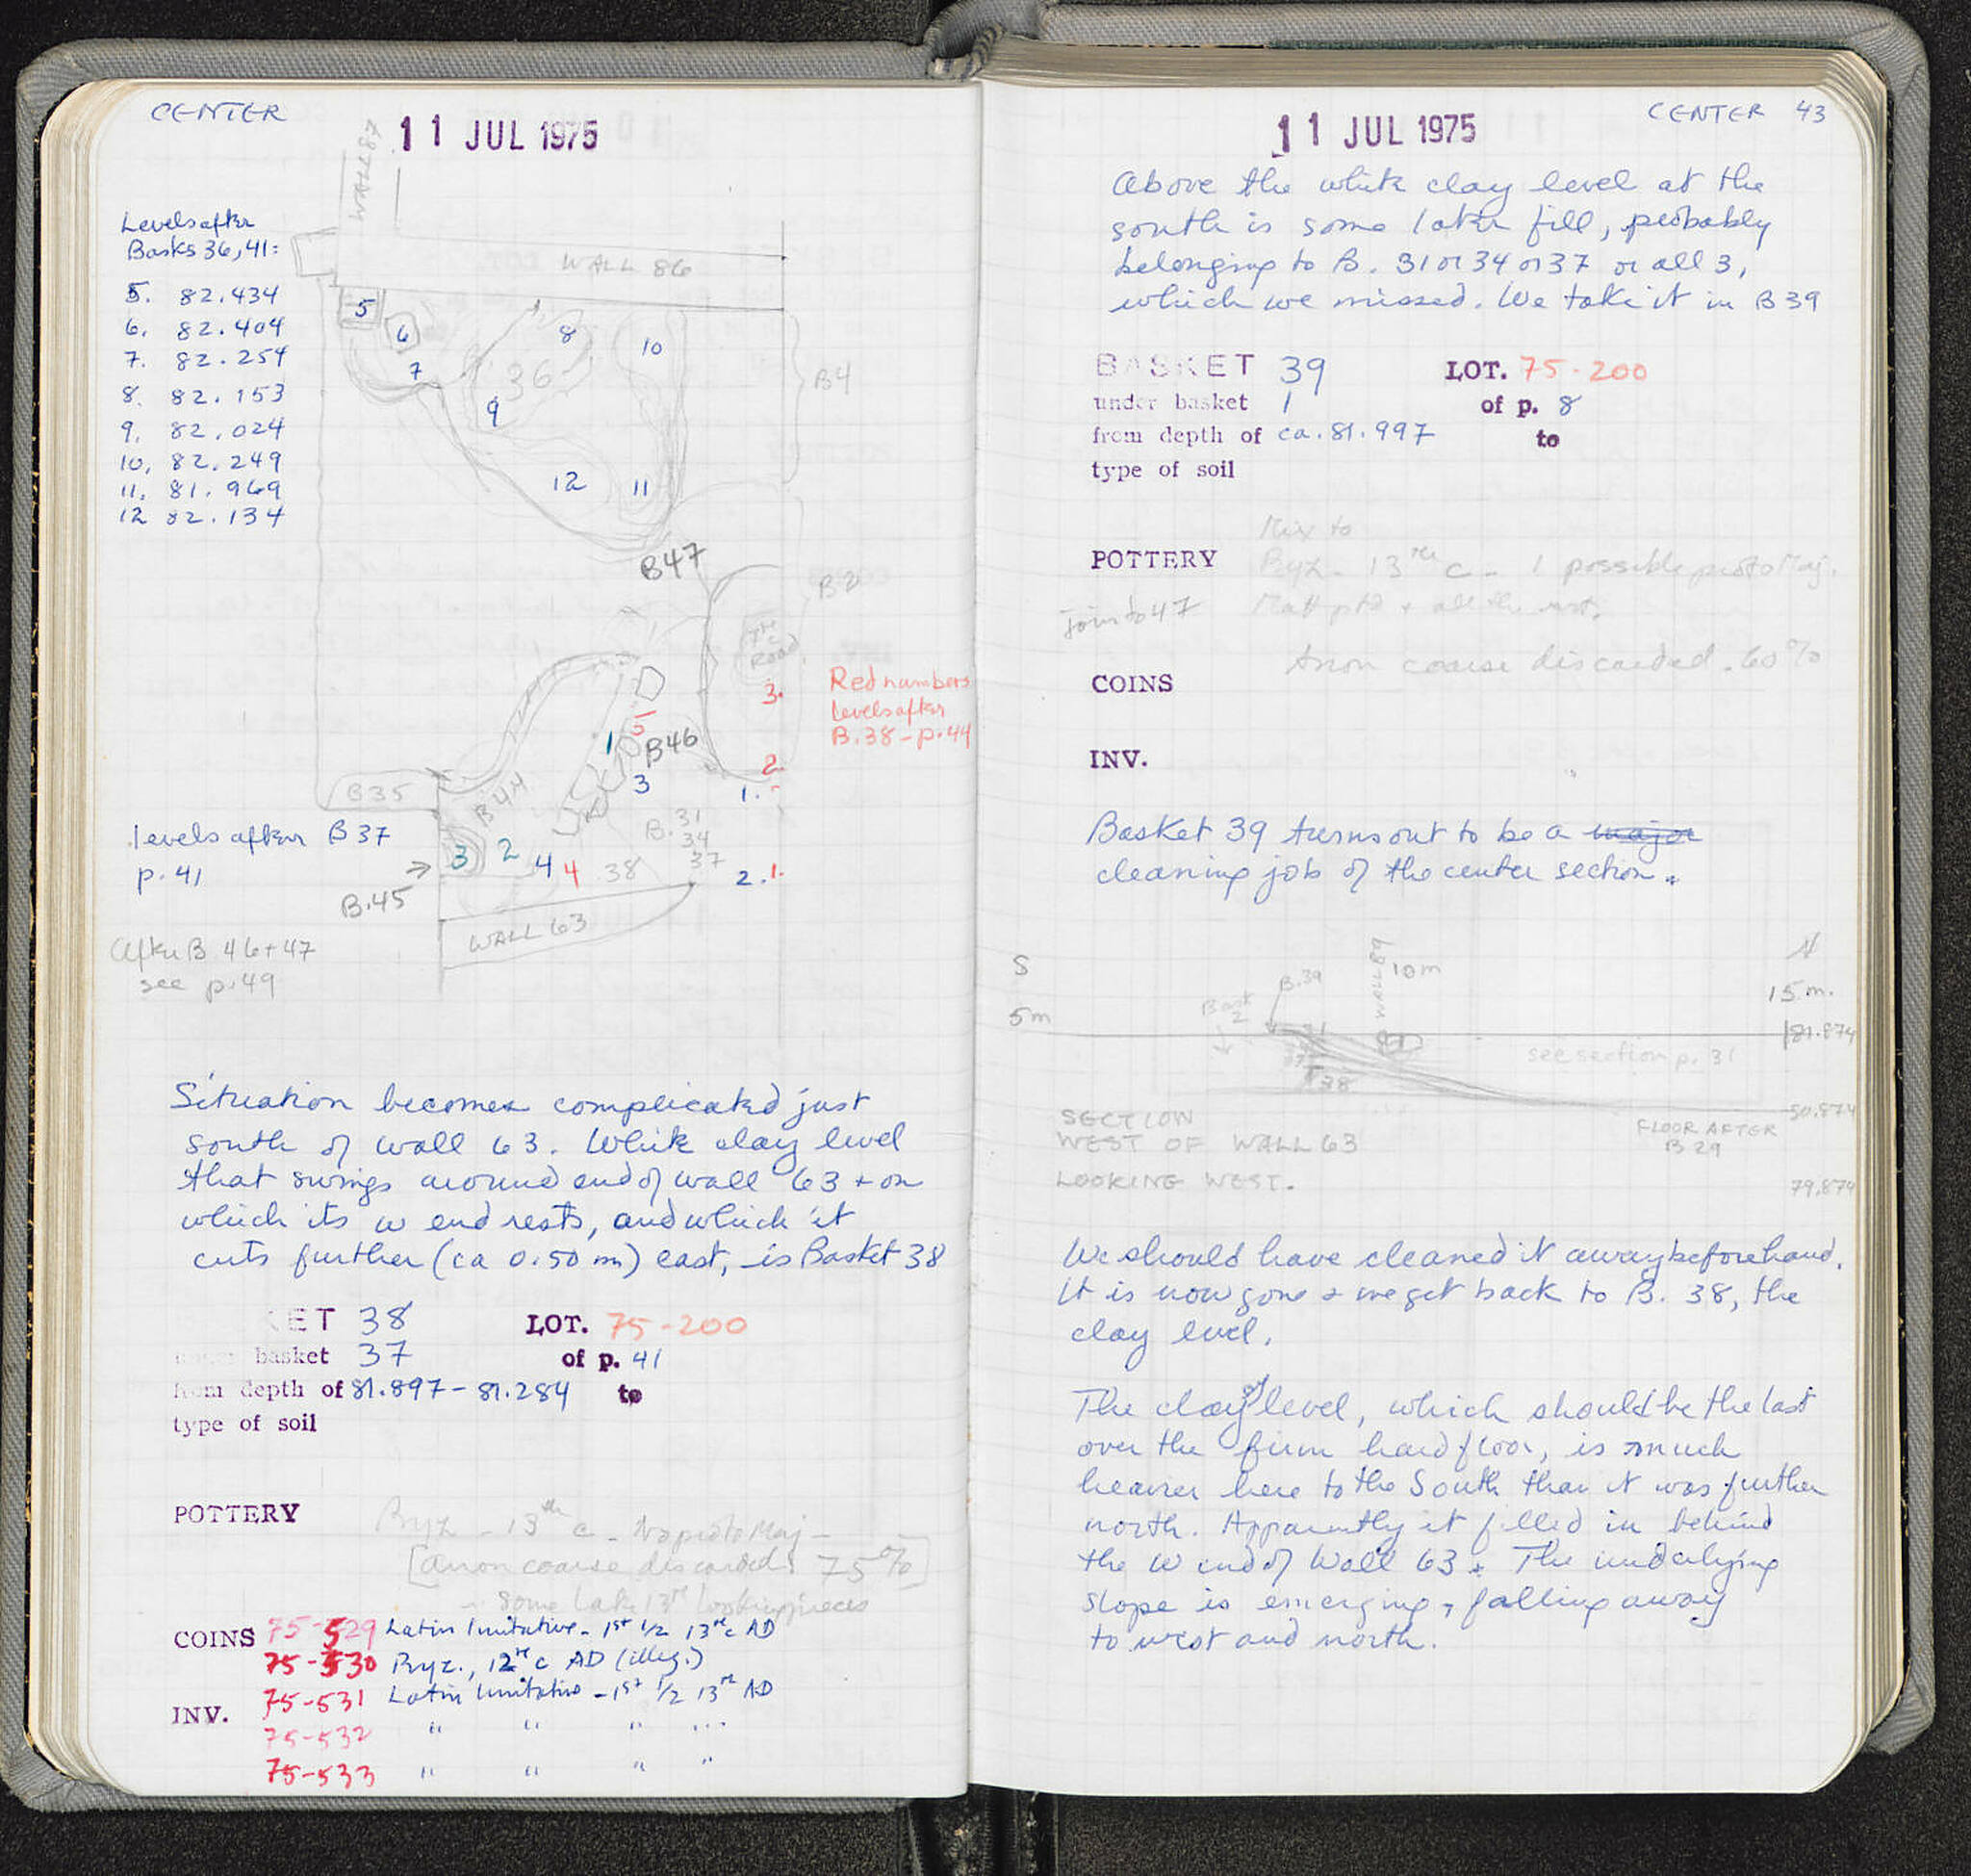 CENTER
11 JUL 1975
WALL 87
Levels after
Basks 36, 41:
5. 82.434
6. 82.404
7. 82.254
8. 82.153
9. 82.024
10. 82.249
11. 81.969
12 82.134
WALL 86
5
6
7
8
10
36
9
12
11
B4
B47
B2
Road
3.
Red numbers
levels after
B.38 - p.44
5
1
B46
3
2.
1.
B35
B44
B.31
34
37
levels after B37
p. 41
3
2
4
4
38
2.
1.
B.45
WALL 63
After B 46+47
see p.49
Situation becomes complicated just
south of wall 63. White clay level
that swings around end of wall 63 + on
which its w end rests, and which it
cuts further (ca 0.50 m) east, is Basket 38
KET 38
LOT. 75-200
under basket 37
of p. 41
from depth of 81.897 - 81.284 to
type of soil
POTTERY Byz - 13th c - No proto Maj -
[Anon coarse discarded: 75%]
- some late 13th looking pieces
COINS 75-529 Latin Imitative - 1st 1/2 13th c AD
75-530 Byz., 12th c AD (illeg.)
75-531 Latin Imitative - 1st 1/2 13th AD
INV.
75-532 " " " "
75-533 " " " "
CENTER 43
11 JUL 1975
Above the white clay level at the
south is some later fill, probably
belonging to B. 31 or 34 or 37 or all 3,
which we missed. We take it in B 39
BASKET 39
LOT. 75-200
under basket 1
of p. 8
from depth of ca. 81.997 to
type of soil
Mix to
POTTERY Byz - 13th c - 1 possible proto Maj.
join to 47 Matt ptd + all the rest.
Anon coarse discarded. 60%
COINS
INV.
Basket 39 turns out to be a major
cleaning job of the center section.
S
N
B.39
10m
Bask
2
15m.
5m
81.874
31
37
38
see section p. 31
80.874
SECTION
WEST OF WALL 63
LOOKING WEST.
FLOOR AFTER
B 29
79.874
We should have cleaned it away beforehand.
It is now gone & we get back to B. 38, the
clay level.
The clayey level, which should be the last
over the firm hard floor, is much
heavier here to the South than it was further
north. Apparently it filled in behind
the W end of Wall 63. The underlying
slope is emerging, falling away
to west and north.